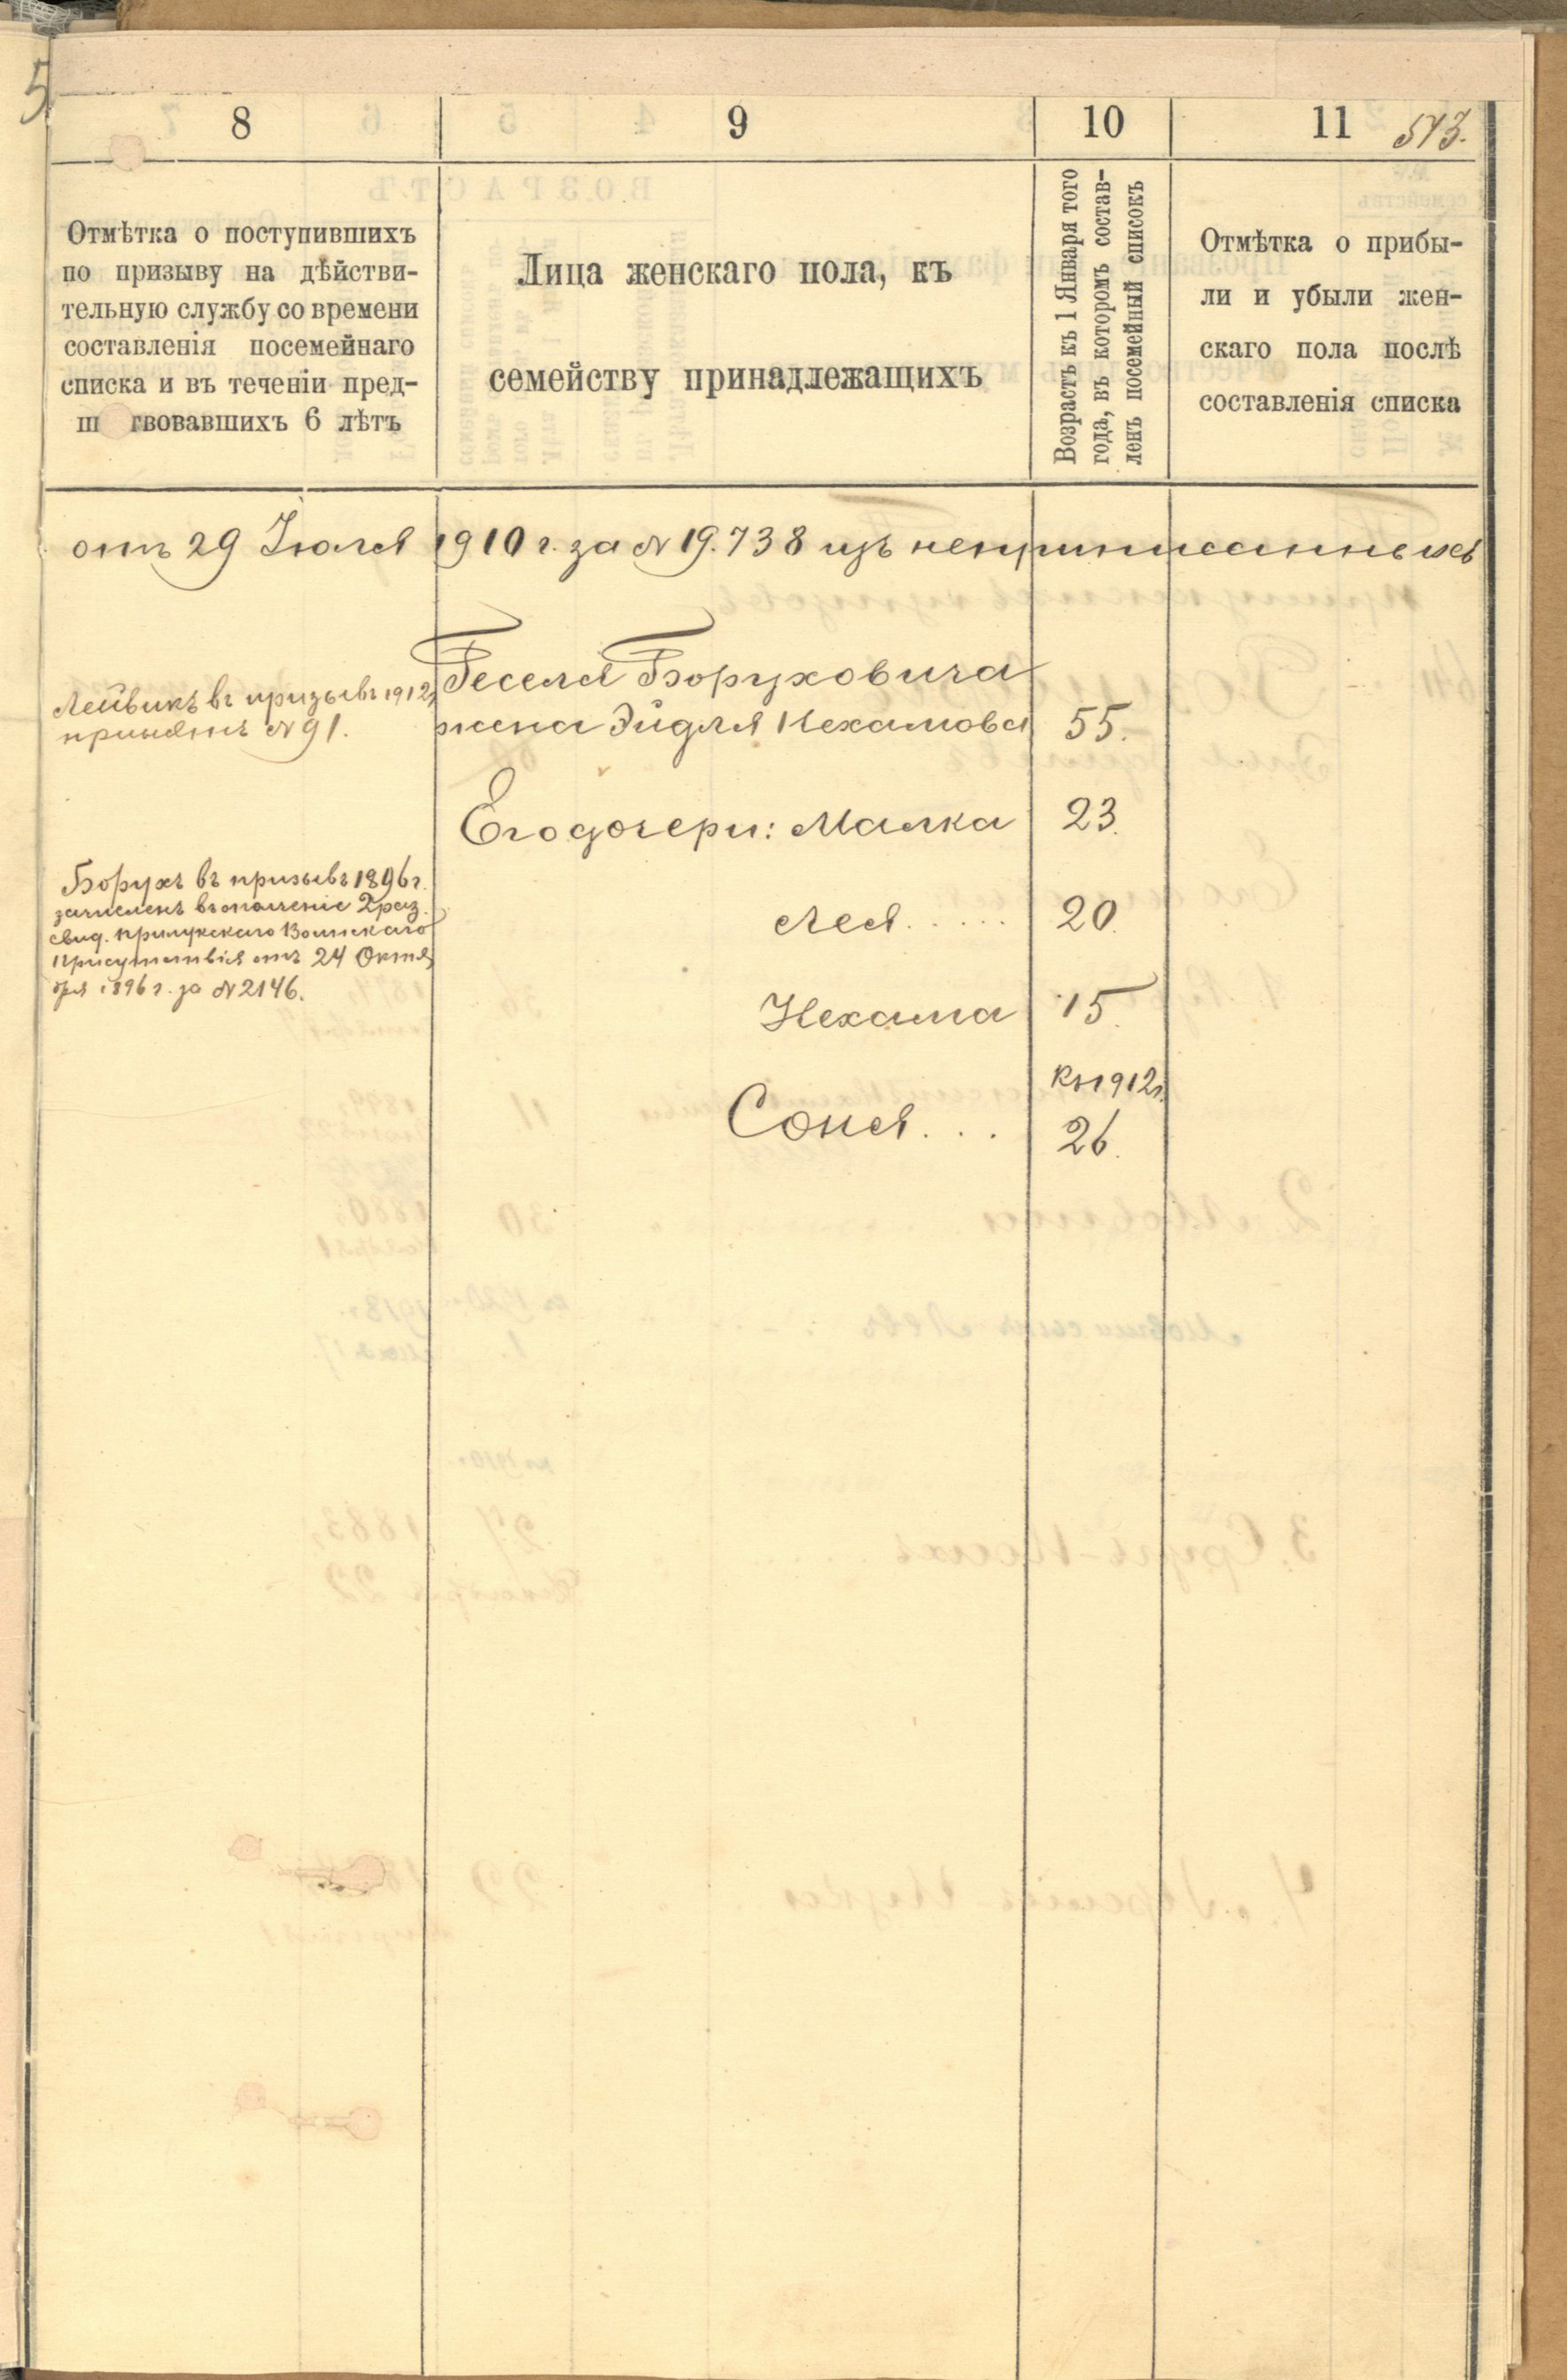 5
8
9
10
11
513.
Отмѣтка о поступившихъ
по призыву на дѣйстви-
тельную службу со времени
составленія посемейнаго
списка и въ теченіи пред-
ш твовавшихъ 6 лѣтъ
Лица женскаго пола, къ
семейству принадлежащихъ
Возрастъ къ 1 Января того
года, въ которомъ состав-
ленъ посемейный списокъ
Отмѣтка о прибы-
ли и убыли жен-
скаго пола послѣ
составленія списка
отъ 29 Іюля 1910 г. за № 19.738 изъ неприписанныхъ
Лейвикъ въ призывъ 1912 г.
принятъ № 91.
Гесела Боруховича
жена Эйдля Нехамова 55.
Его дочери: Малка 23.
Борухъ въ призывъ 1896 г.
зачисленъ въ ополченіе 2 раз.
свид. Прилукскаго Воинскаго
Присутствія отъ 24 Октя
бря 1896 г. за № 2146.
Лея..... 20.
Нехама 15.
Къ 1912 г.
Соня... 26.